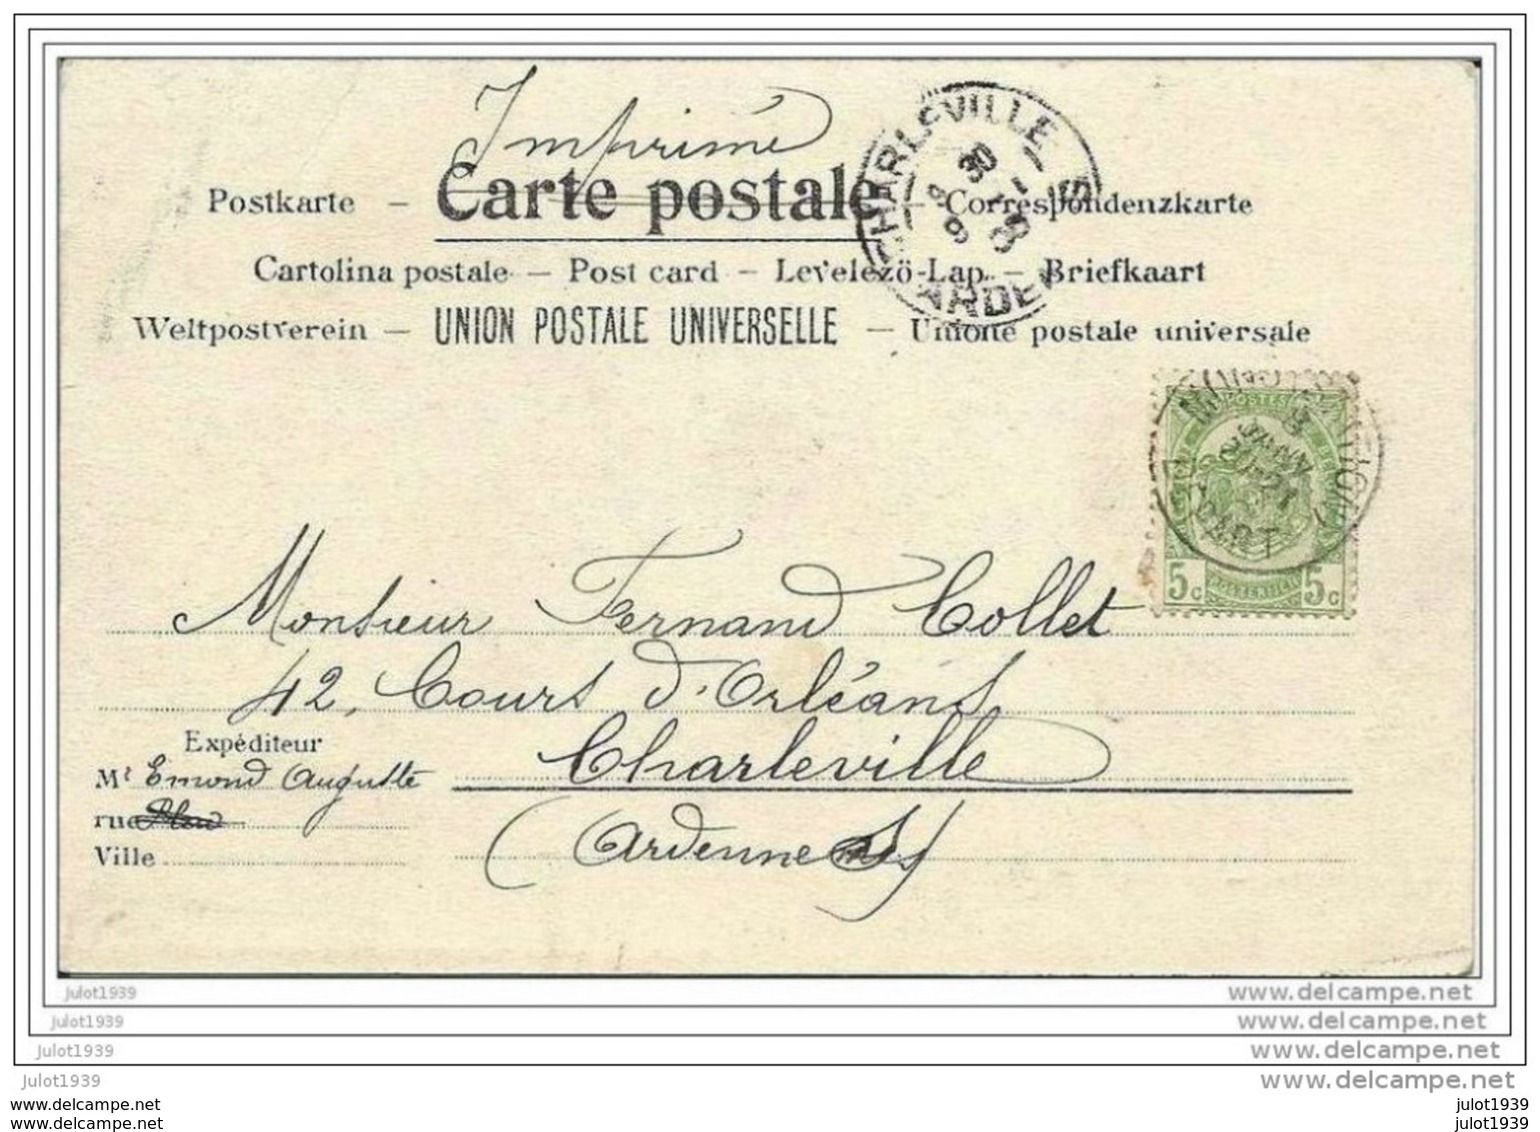 Imprimé
Postkarte – Carte postale – Correspondenzkarte
Cartolina postale – Post card – Levelező-Lap – Briefkaart
Weltpostverein – UNION POSTALE UNIVERSELLE – Unione postale universale
CHARLEVILLE
ARDEN
POSTES
DEPART
5c 5c
Monsieur Fernand Collet
42, Cours d'Orléans
Charleville
(Ardennes)
Expéditeur
Mr Emond Auguste
rue
Ville
julot1939 www.delcampe.net
julot1939 www.delcampe.net
julot1939 www.delcampe.net
julot1939 www.delcampe.net
www.delcampe.com julot1939
www.delcampe.com julot1939